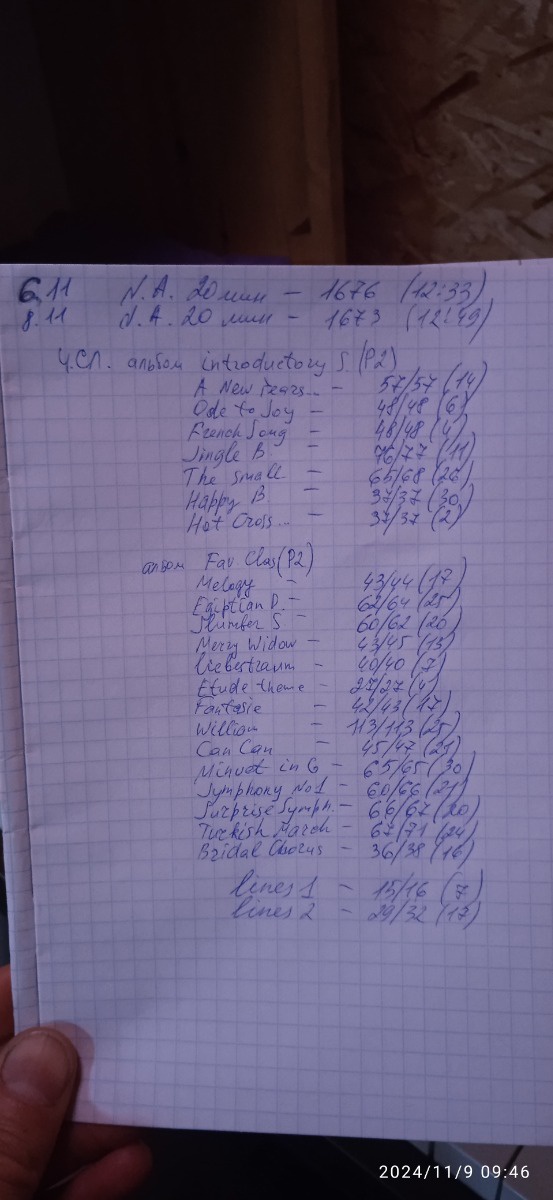 6.11 N.A. 20 мин – 1676 (12:33)
8.11 N.A. 20 мин – 1673 (12:49)
Ч.СЛ. альбом introductory S. (P2)
A New Years... – 57/57 (14)
Ode to Joy – 48/48 (6)
French Song – 48/48 (4)
Jingle B – 76/77 (11)
The small – 65/68 (26)
Happy B – 37/37 (30)
Hot Cross... – 37/37 (2)
альбом Fav Clas (P2)
Melogy – 43/44 (17)
Egiptian D. – 62/64 (25)
Slumber S – 60/62 (20)
Merry Widow – 43/45 (13)
Liebestraum – 40/40 (7)
Etude theme – 27/27 (4)
Fantasie – 42/43 (17)
William – 113/113 (25)
Can Can – 45/47 (21)
Minuet in G – 65/65 (30)
Symphony No1 – 60/66 (21)
Surprise Symph. – 66/67 (20)
Turkish March – 67/71 (24)
Bridal Chorus – 36/38 (16)
lines 1 – 15/16 (7)
lines 2 – 29/32 (17)
2024/11/9 09:46